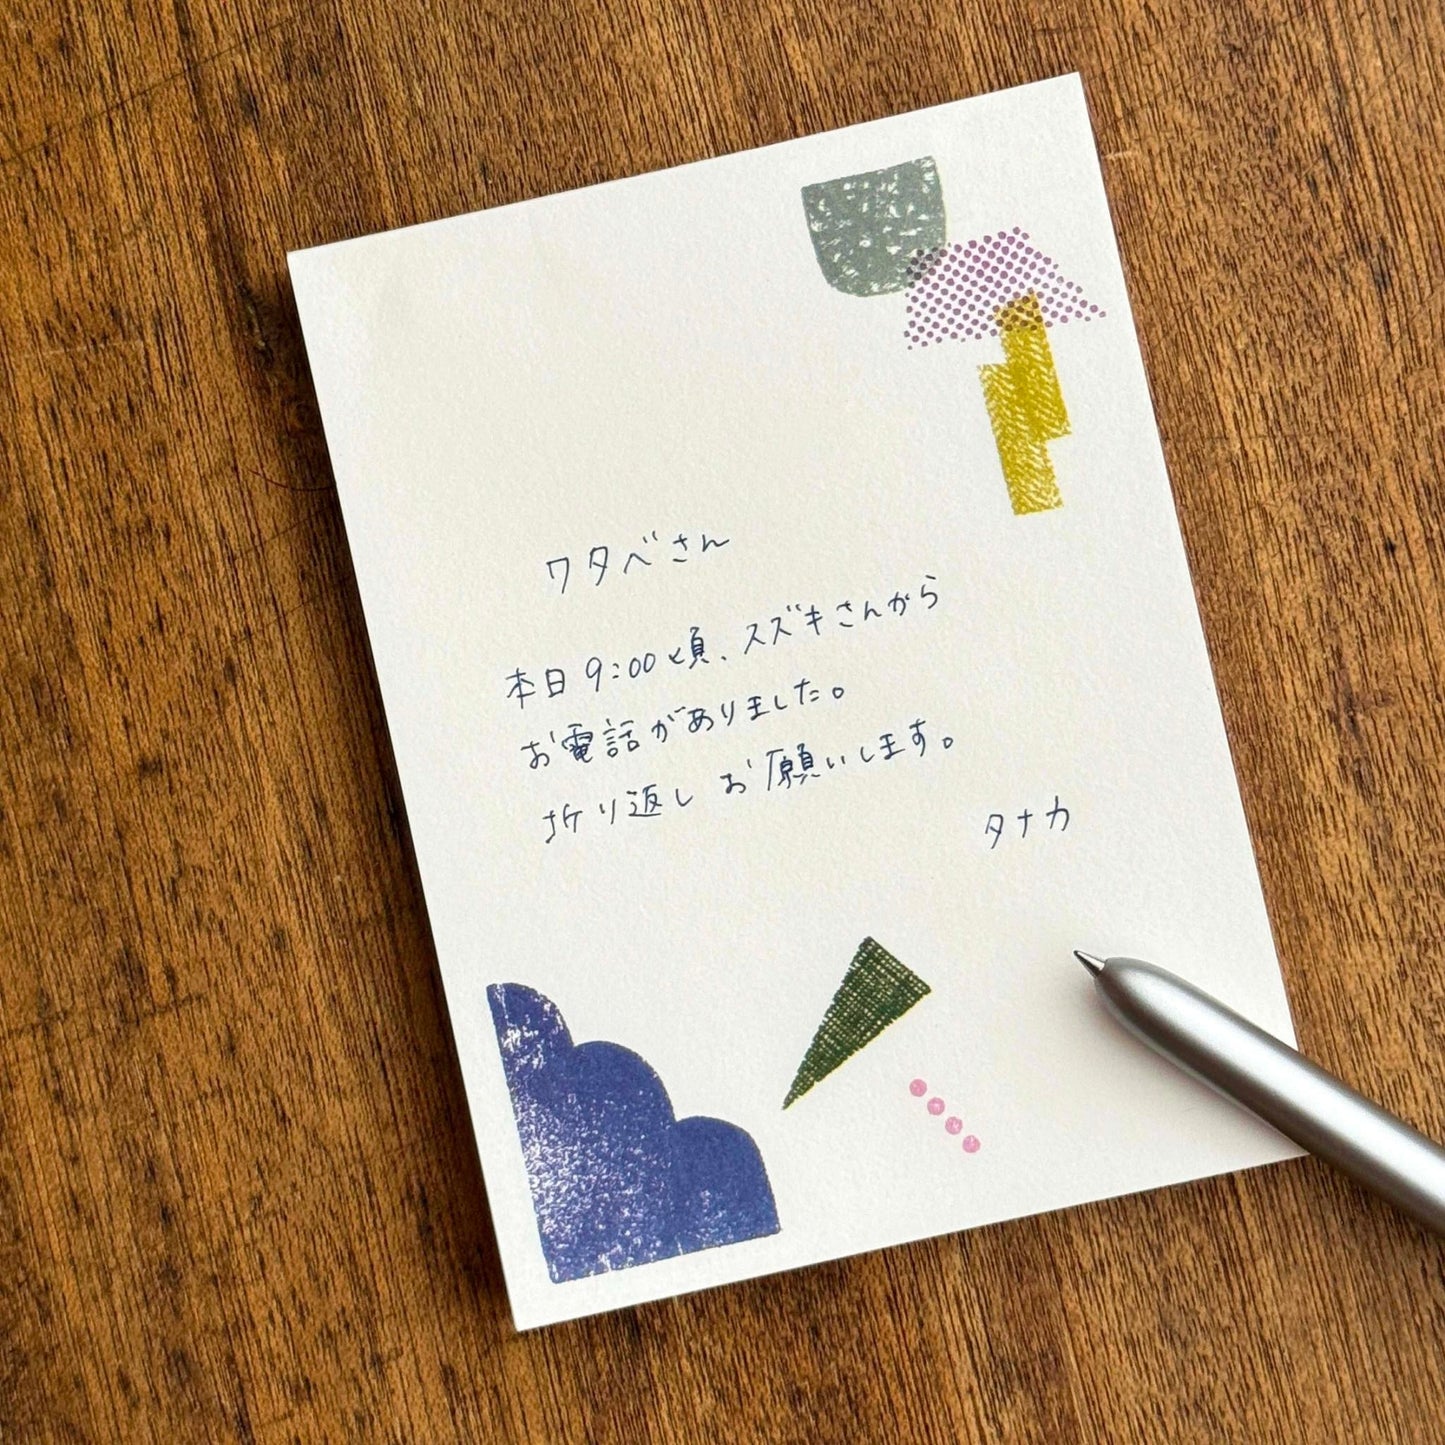 ワタベさん
本日9:00頃、スズキさんから
お電話がありました。
折り返しお願いします。
タナカ